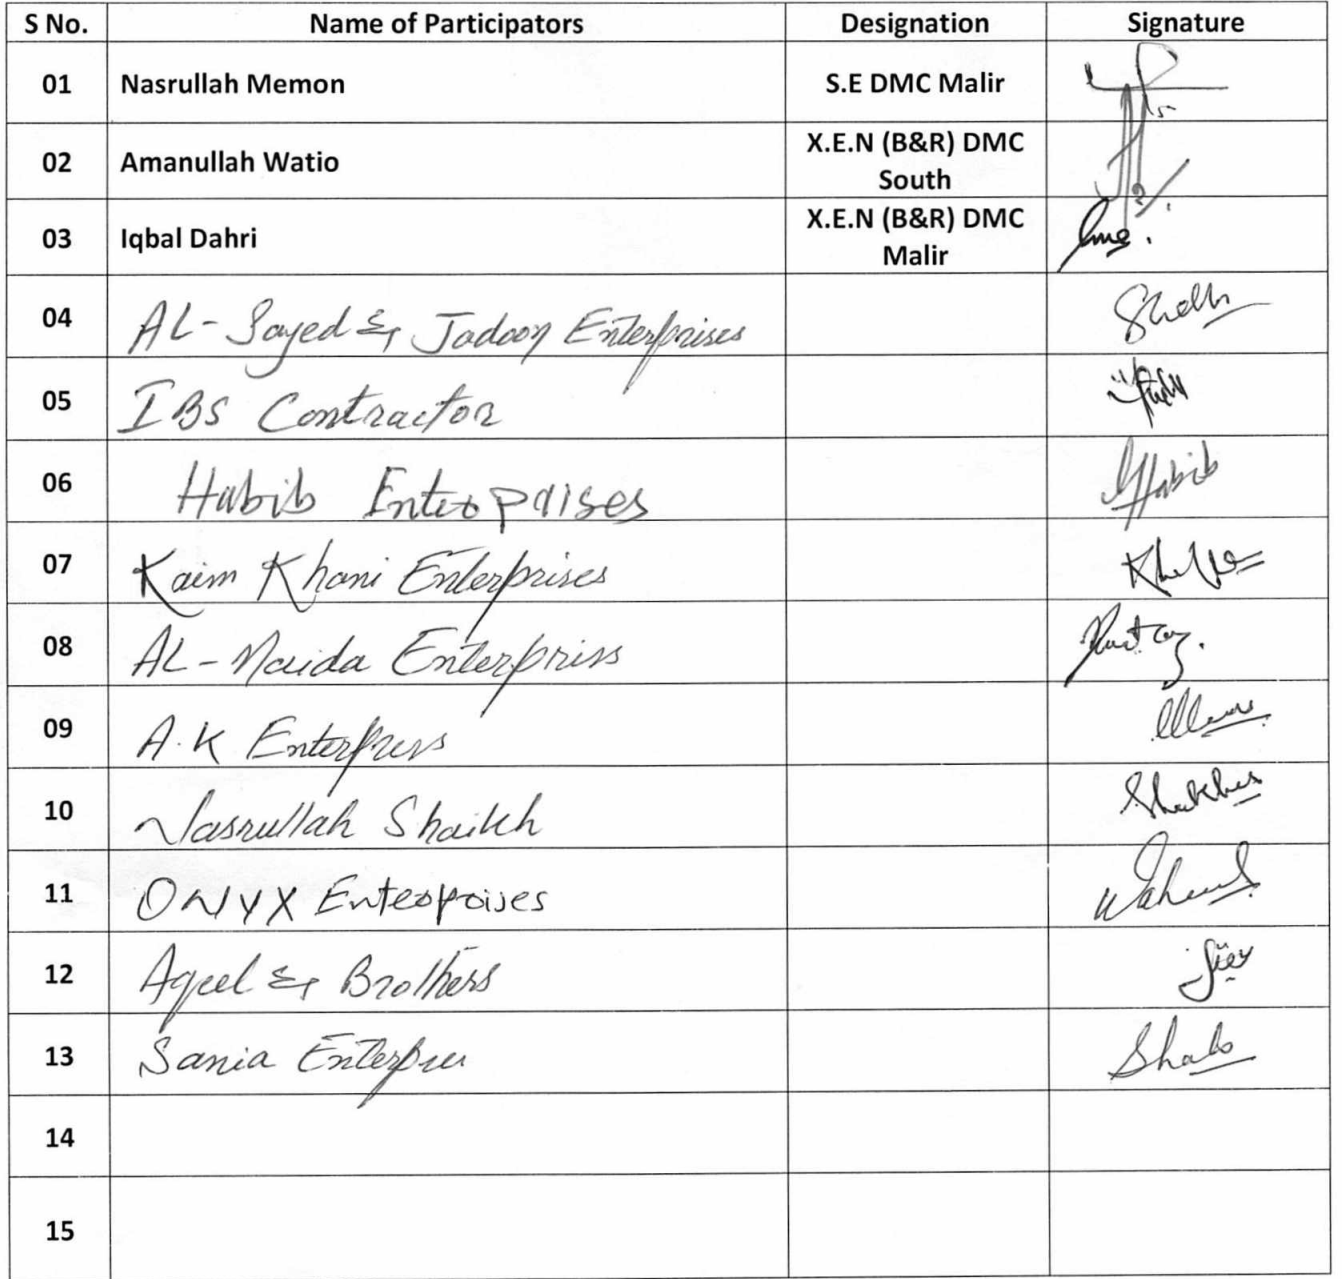 S No. Name of Participators Designation Signature
01 Nasrullah Memon S.E DMC Malir
02 Amanullah Watio X.E.N (B&R) DMC
South
03 Iqbal Dahri X.E.N (B&R) DMC
Malir
04 AL-Sayed & Jadoon Enterprises
05 IBS Contractor
06 Habib Enterprises Habib
07 Kaim Khani Enterprises
08 AL-Maida Enterpriss
09 A.K Enterpress
10 Nasrullah Shaikh
11 ONYX Enterprises
12 Aqeel & Brothers
13 Sania
14
15